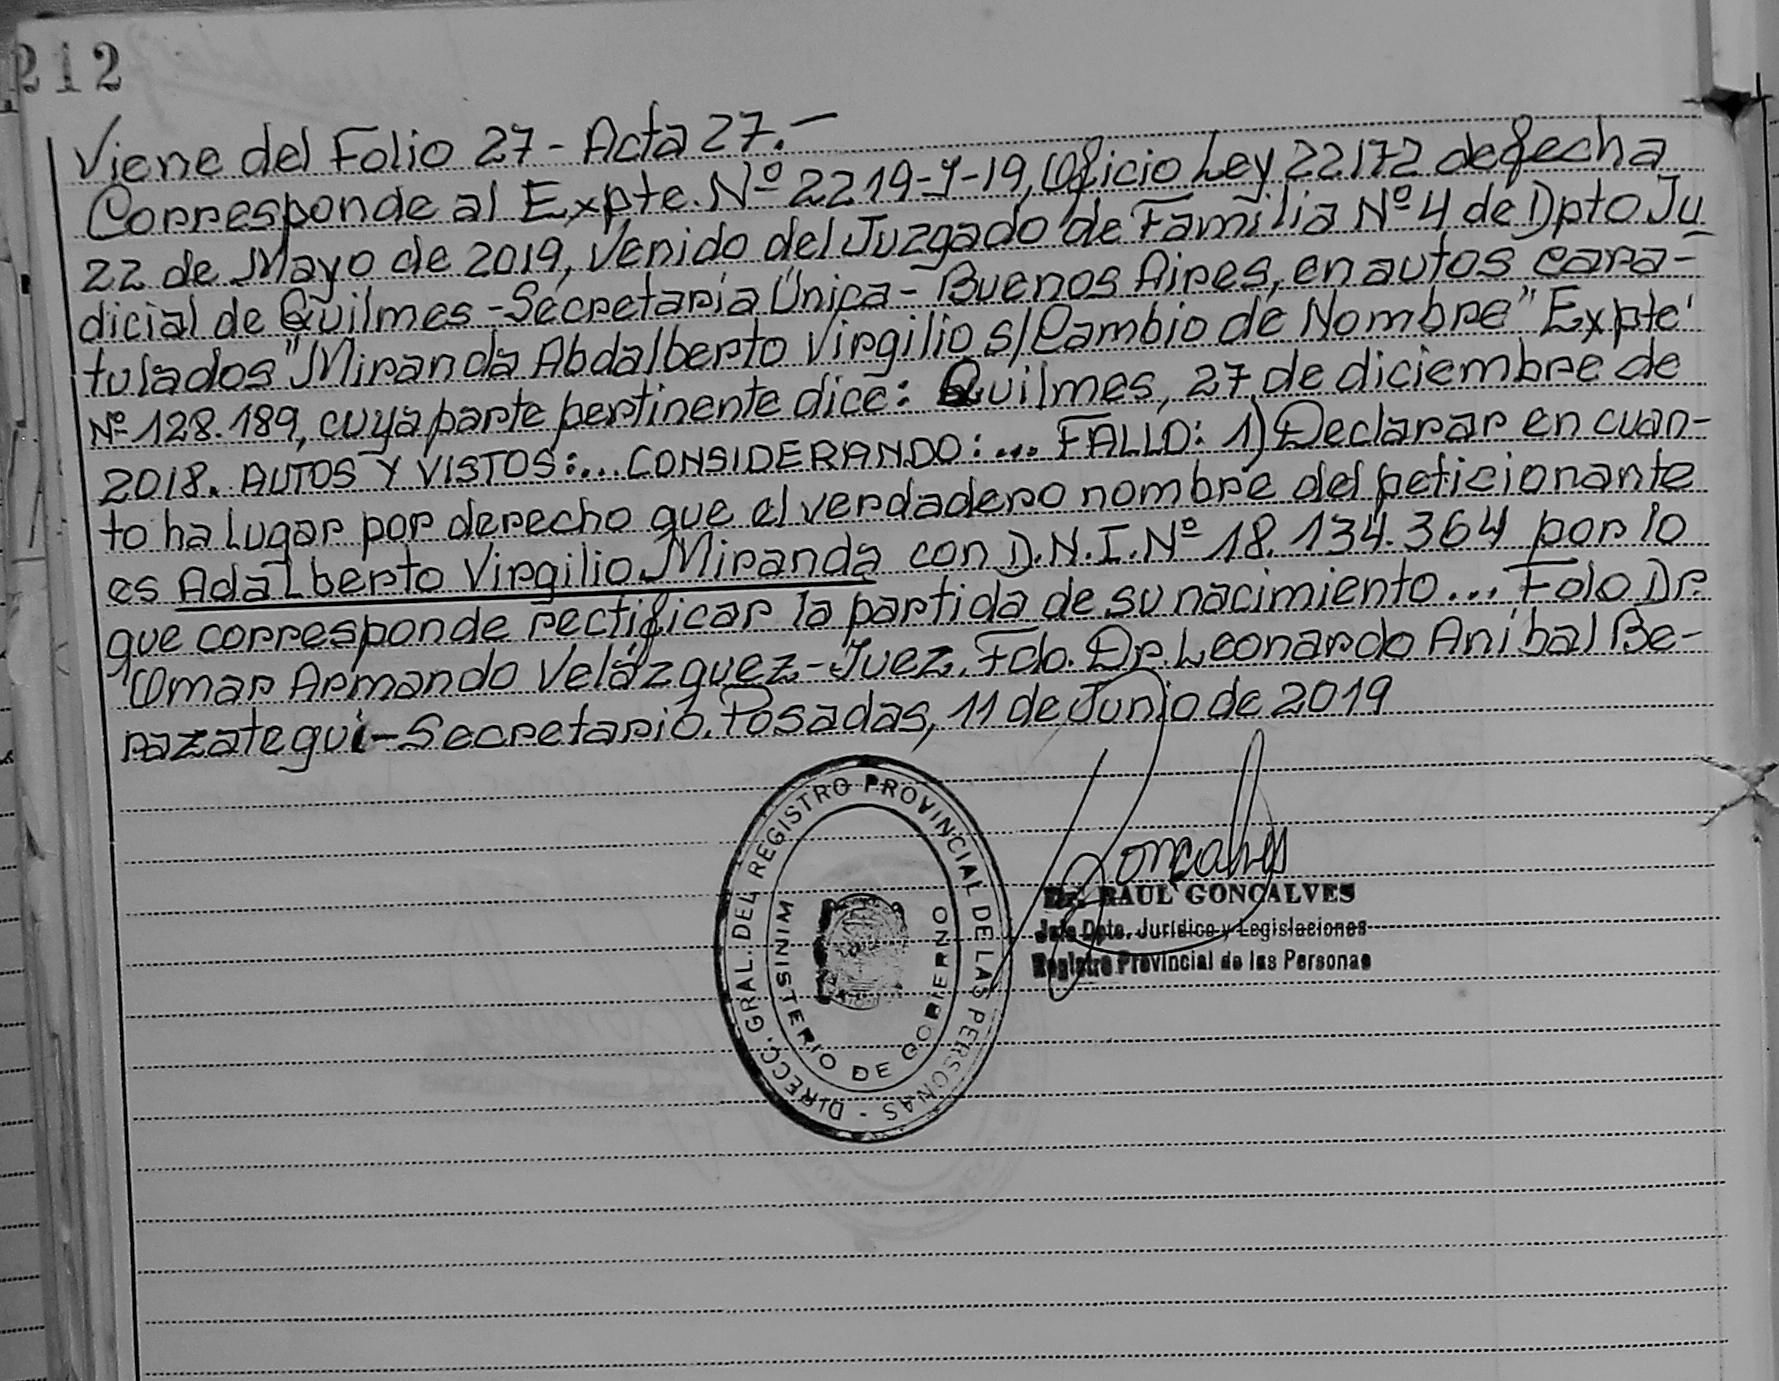 212
Viene del Folio 27 - Acta 27.-
Corresponde al Expte. Nº 2219-J-19, Oficio Ley 22172 de fecha
22 de Mayo de 2019, Venido del Juzgado de Familia Nº 4 de Dpto Ju
dicial de Quilmes - Secretaría Única - Buenos Aires, en autos cara-
tulados "Miranda Abdalberto Virgilio s/Cambio de Nombre" Expte
Nº 128.189, cuya parte pertinente dice: Quilmes, 27 de diciembre de
2018. AUTOS Y VISTOS:... CONSIDERANDO:... FALLO: 1) Declarar en cuan-
to ha lugar por derecho que el verdadero nombre del peticionante
es Adalberto Virgilio Miranda con D.N.I. Nº 18.134.364 por lo
que corresponde rectificar la partida de su nacimiento... Fdo Dr.
Omar Armando Velázquez - Juez. Fdo. Dr. Leonardo Aníbal Be-
razategui - Secretario. Posadas, 11 de Junio de 2019
DIRECC. GRAL. DEL REGISTRO PROVINCIAL DE LAS PERSONAS -
MINISTERIO DE GOBIERNO
Goncalves
Dr. RAUL GONCALVES
Jefe Dpto. Jurídico y Legislaciones
Registro Provincial de las Personas